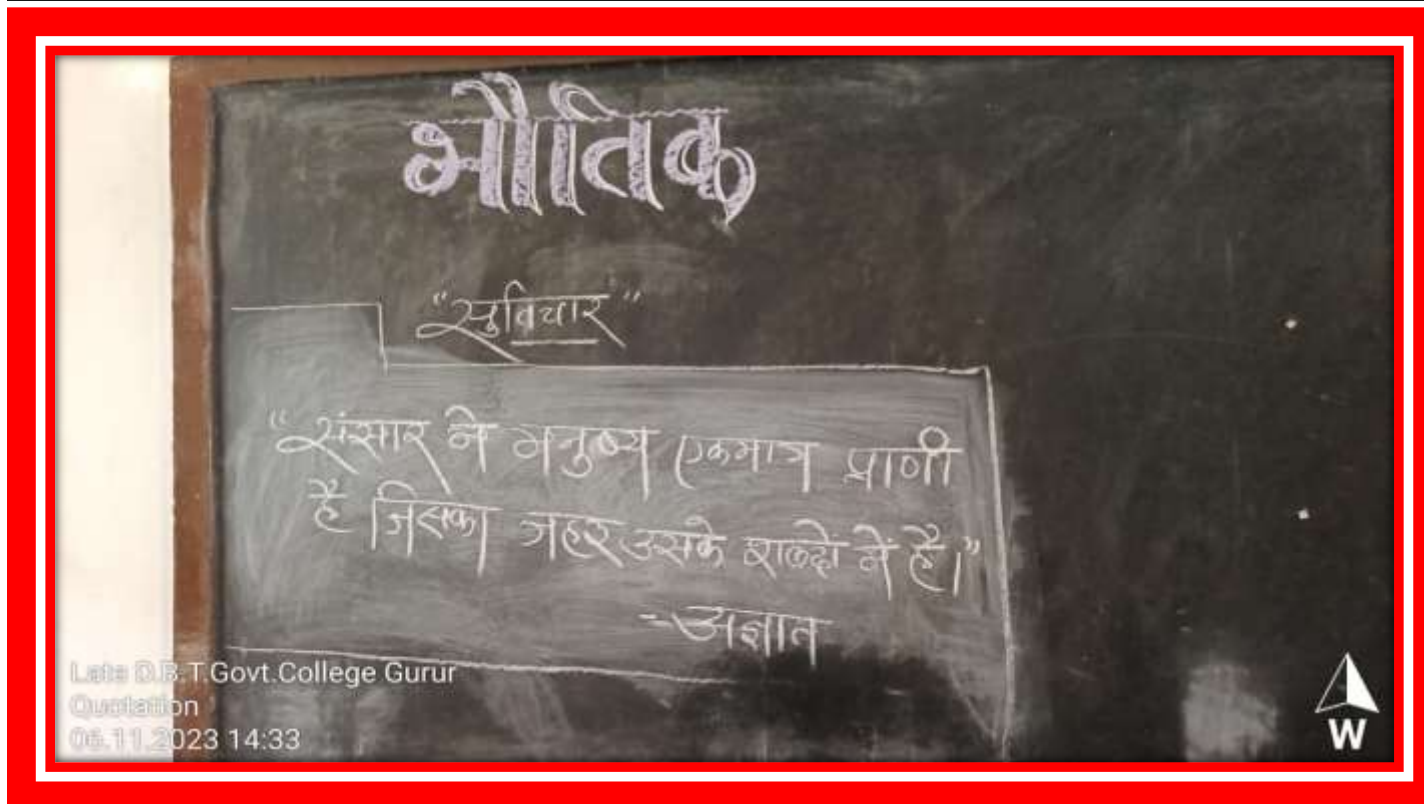 भौतिक
"सुविचार"
"संसार ने मनुष्य एकमात्र प्राणी
है जिसका जहर उसके शब्दों में है।"
-अज्ञात
Late D.B.T.Govt.College Gurur
Quotation
06.11.2023 14:33
W